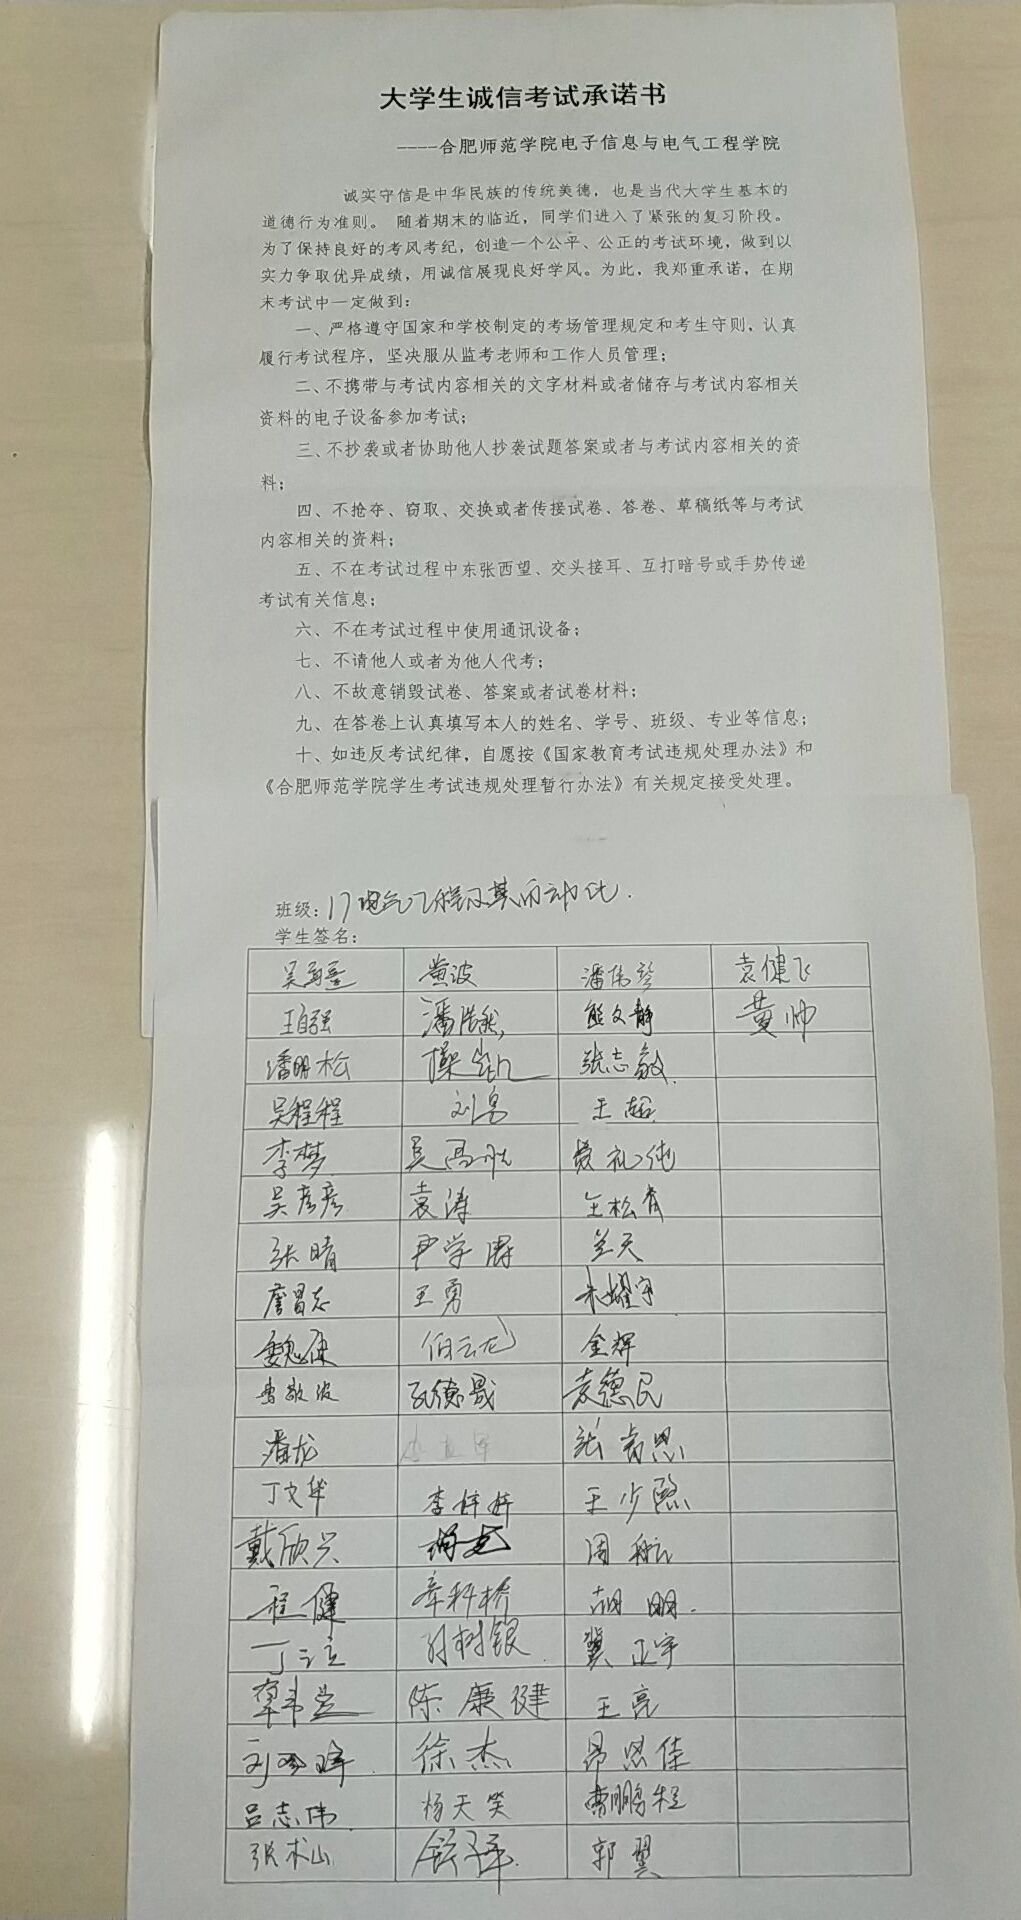 大学生诚信考试承诺书
----合肥师范学院电子信息与电气工程学院
诚实守信是中华民族的传统美德，也是当代大学生基本的
道德行为准则。 随着期末的临近，同学们进入了紧张的复习阶段。
为了保持良好的考风考纪，创造一个公平、公正的考试环境，做到以
实力争取优异成绩，用诚信展现良好学风。为此，我郑重承诺，在期
末考试中一定做到：
一、严格遵守国家和学校制定的考场管理规定和考生守则，认真
履行考试程序，坚决服从监考老师和工作人员管理；
二、不携带与考试内容相关的文字材料或者储存与考试内容相关
资料的电子设备参加考试；
三、不抄袭或者协助他人抄袭试题答案或者与考试内容相关的资
料；
四、不抢夺、窃取、交换或者传接试卷、答卷、草稿纸等与考试
内容相关的资料；
五、不在考试过程中东张西望、交头接耳、互打暗号或手势传递
考试有关信息；
六、不在考试过程中使用通讯设备；
七、不请他人或者为他人代考；
八、不故意销毁试卷、答案或者试卷材料；
九、在答卷上认真填写本人的姓名、学号、班级、专业等信息；
十、如违反考试纪律，自愿按《国家教育考试违规处理办法》和
《合肥师范学院学生考试违规处理暂行办法》有关规定接受处理。
班级：17电气工程及其自动化.
学生签名：
黄波 袁健飞
王自强 潘浩然 熊文静 黄帅
潘明松 操凯 张志敏
吴程程 刘勇 王超
李梦
吴彦彦 袁涛 王松
张晴 尹学涛 兰天
詹昌志 王勇 朱耀宇
魏康 伯云龙 金辉
曹敬波 孔德晟 袁德民
潘龙 张
丁文华 李婷婷 王少
戴欣兴 周航
程健 牵科桥 胡明.
丁立 付树银 冀正宇
陈康健 王亮
徐杰 昂思佳
吕志伟 杨天笑 曹鹏程
张术山 郭翼